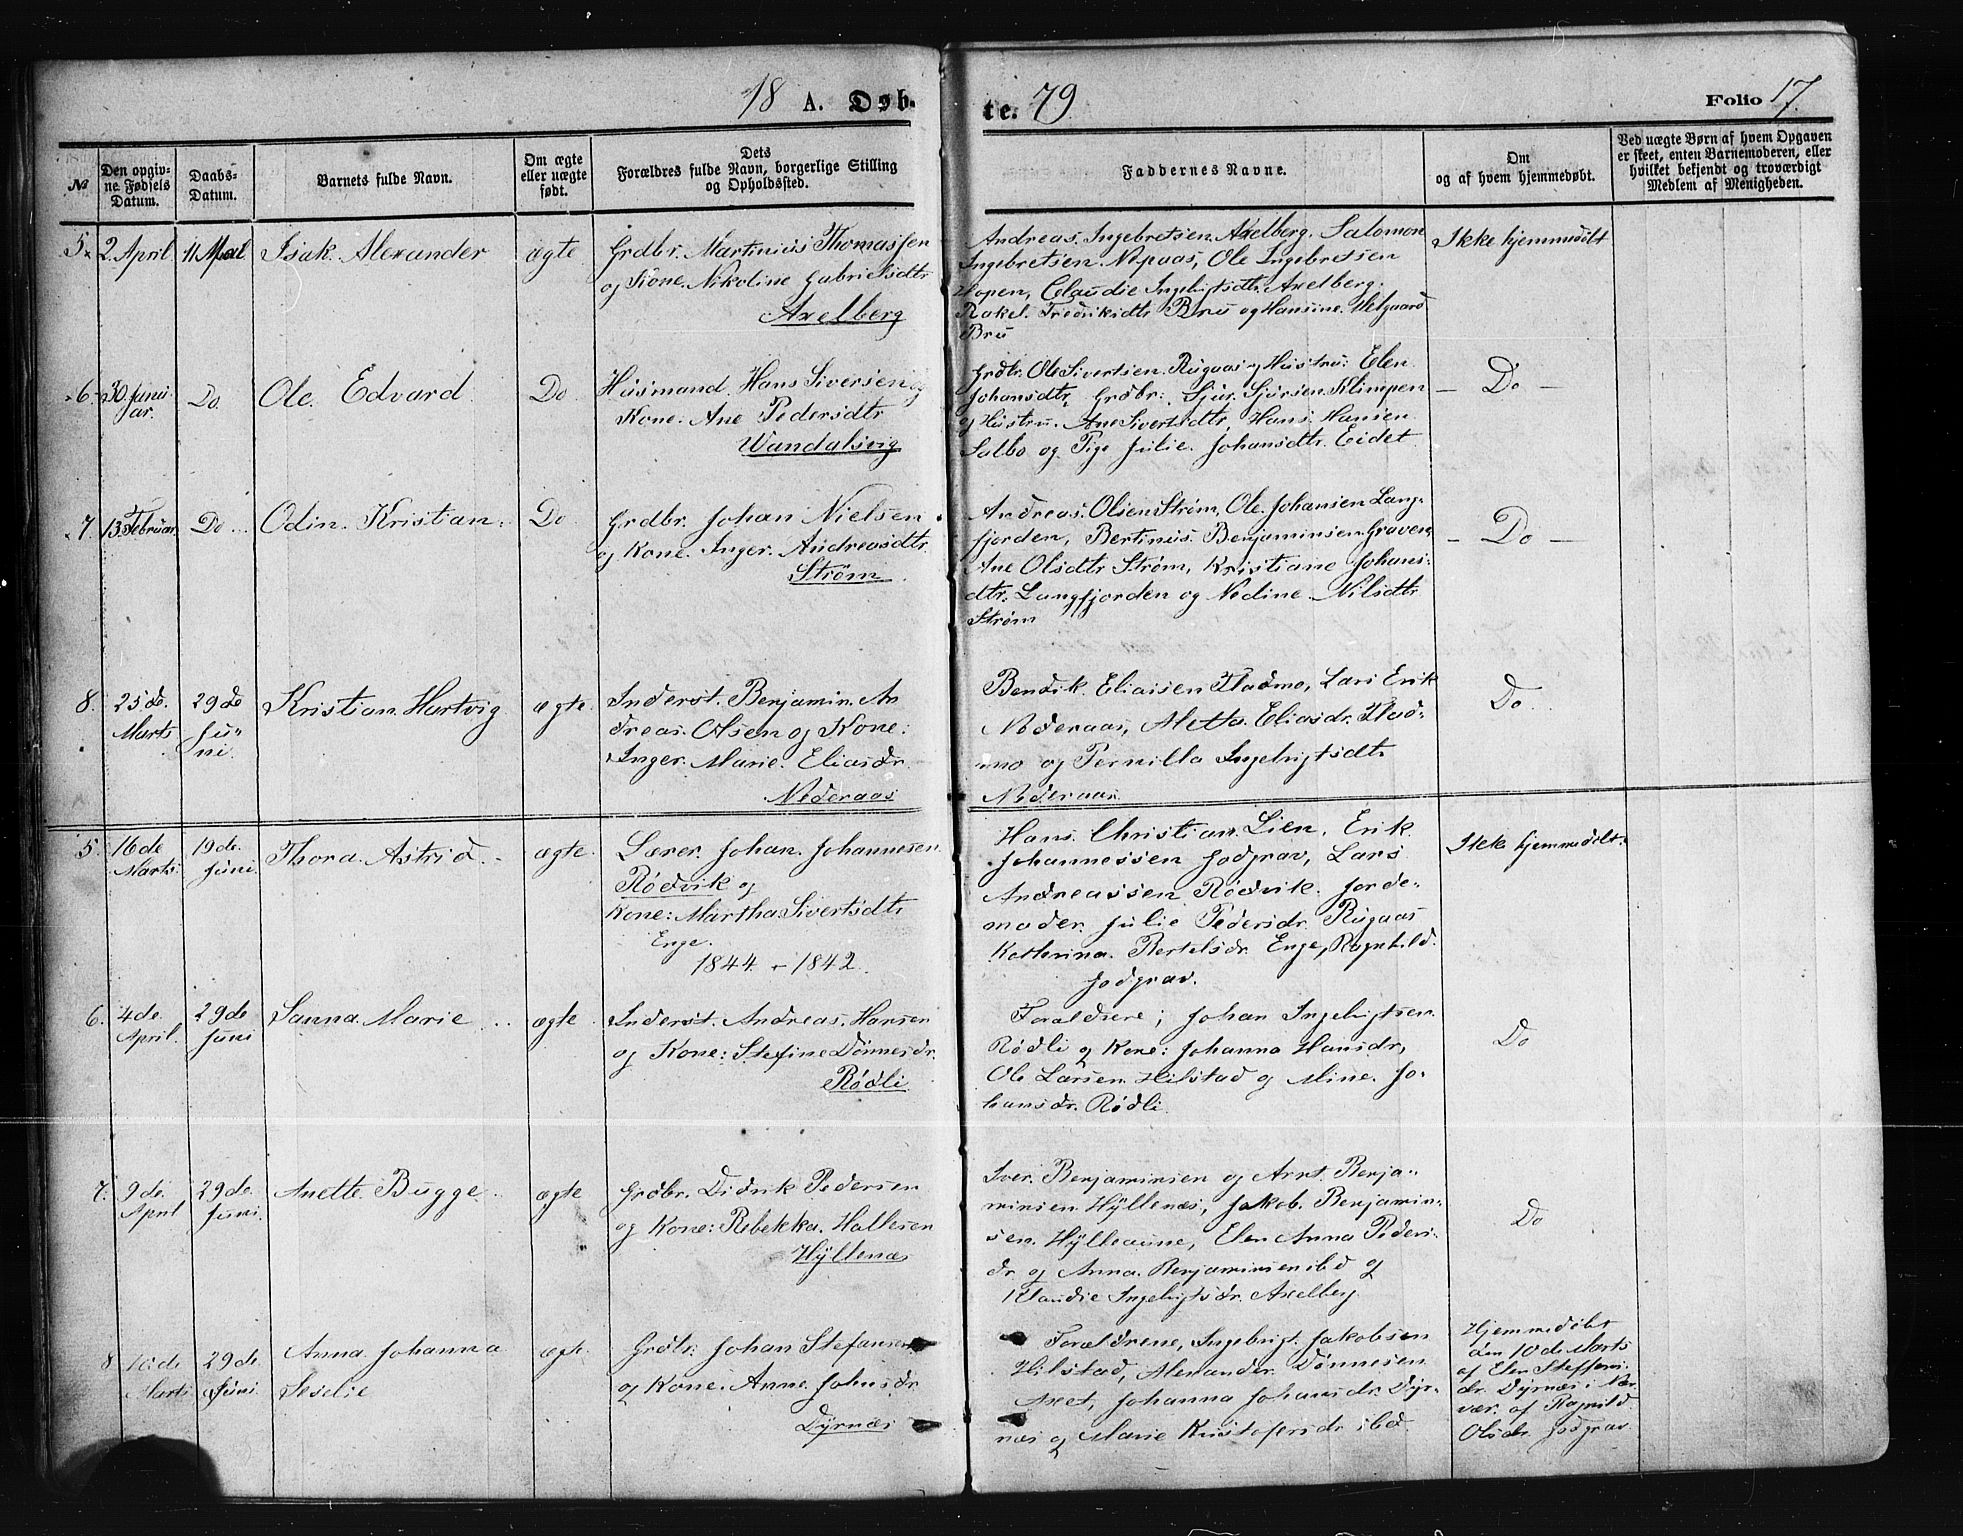 18 A. Døb-
te. 79
Folio 17.
№
Den opgiv-
ne Fødsels
Datum.
Daabs-
Datum.
Barnets fulde Navn.
Om ægte
eller uægte
født.
Dets
Forældres fulde Navn, borgerlige Stilling
og Opholdssted.
Faddernes Navne.
Om
og af hvem hjemmedøbt.
Ved uægte Børn af hvem Opgaven
er skeet, enten Barnemoderen, eller
hvilket bekjendt og troværdigt
Medlem af Menigheden.
5. 2 April 11 Mai Isak Alexander ægte
Grdbr. Martinius Thomassen
og Kone Nikoline Gabrielsdtr
Axelberg
Andreas Ingebretsen Axelberg. Salomon
Ingebretsen Nepaas, Ole Ingebretsen
Hopen, Claudie Ingebrigtsdtr Axelberg.
Rakel Fredriksdtr Bru og Hansine Helgaard
Bru
Ikke hjemmedøbt
6. 30 Janu-
ar. Do. Ole Edvard Do.
Husmand Hans Siversen og
Kone Ane Pedersdtr
Wandalsvig
Grdbr. Ole Sivertsen Rugaas og Hustru Elen
Johansdtr, Grdbr: Sjur Sjursen Klimpen
og Hustru Ane Sivertsdtr, Hans Hansen
Salbo og Pige Julie Johansdtr Eidet
– Do –
7. 13 Februar. Do. Odin Kristian Do
Grdbr. Johan Nielsen
og Kone Inger Andreasdtr
Strøm
Andreas Olsen Strøm, Ole Johansen Lang-
fjorden, Bertinus Benjaminsen Graven,
Ane Olsdtr Strøm, Kristiane Johans-
dtr. Langfjorden og Nedine Nilsdtr
Strøm
– Do –
8. 25de
Marts 29de
Ju-
ni. Kristian Hartvig ægte
Inderst. Benjamin An
dreas Olsen og Kone:
Inger Marie Eliasdr.
Nederaas
Bendik Eliasen Fladmo, Lars Erik
Nederaas, Aletta Eliasdr. Flad-
mo og Pernilla Ingebrigtsdtr
Nederaas
Do
5. 16de
Marts 19de
Juni. Thora Astrid ægte
Lærer Johan Johannesen
Rødvik og
Kone: Martha Sivertsdtr
Enge.
1844 – 1842.
Hans Christian Lien, Erik
Johannessen Jodgrav, Lars
Andreassen Rødvik. Jorde-
moder Julie Pedersdr. Rugaas
Kathrina Bertelsdr. Enge, Ragnhild
Jodgrav.
Ikke hjemmedøbt.
6. 4de
April. 29de
Juni Sanna Marie ægte
Inderst. Andreas Hansen
og Kone: Stefine Dønnesdr.
Rødli
Forældrene; Johan Ingebrigtsen
Rødli og Kone: Johanna Hansdr,
Ole Larsen Hilstad og Mine Jo-
hansdr. Rødli.
Do
7. 9de
April 29de
Juni. Anette Bugge ægte
Grdbr. Didrik Pedersen
og Kone: Rebekka Hallesen
Hÿllenæs
Iver Benjaminsen og Arnt Benja-
minsen Hÿllenæs, Jakob Benjamin-
sen Hÿlleaune, Elen Anna Peders-
dr. og Anna Benjaminsen ibd og
Klaudie Ingebrigtsdr. Axelberg.
Do
8 10de
Marts 29de
Juni. Anna Johanna
Seselie ægte
Grdbr: Johan Stefansen
og Kone: Anne Johnsdr.
Dÿrnæs
Forældrene, Ingebrigt Jakobsen
Hilstad, Alexander Dønnesen
Axet, Johanna Johansdr. Dÿr-
næs og Marie Kristofersdr. ibd.
Hjemmedøbt
den 10de Marts
af Elen Steffens-
dr. Dyrnæs i Nær-
vær. af Ragnild
Olsdr. Jodgrav.